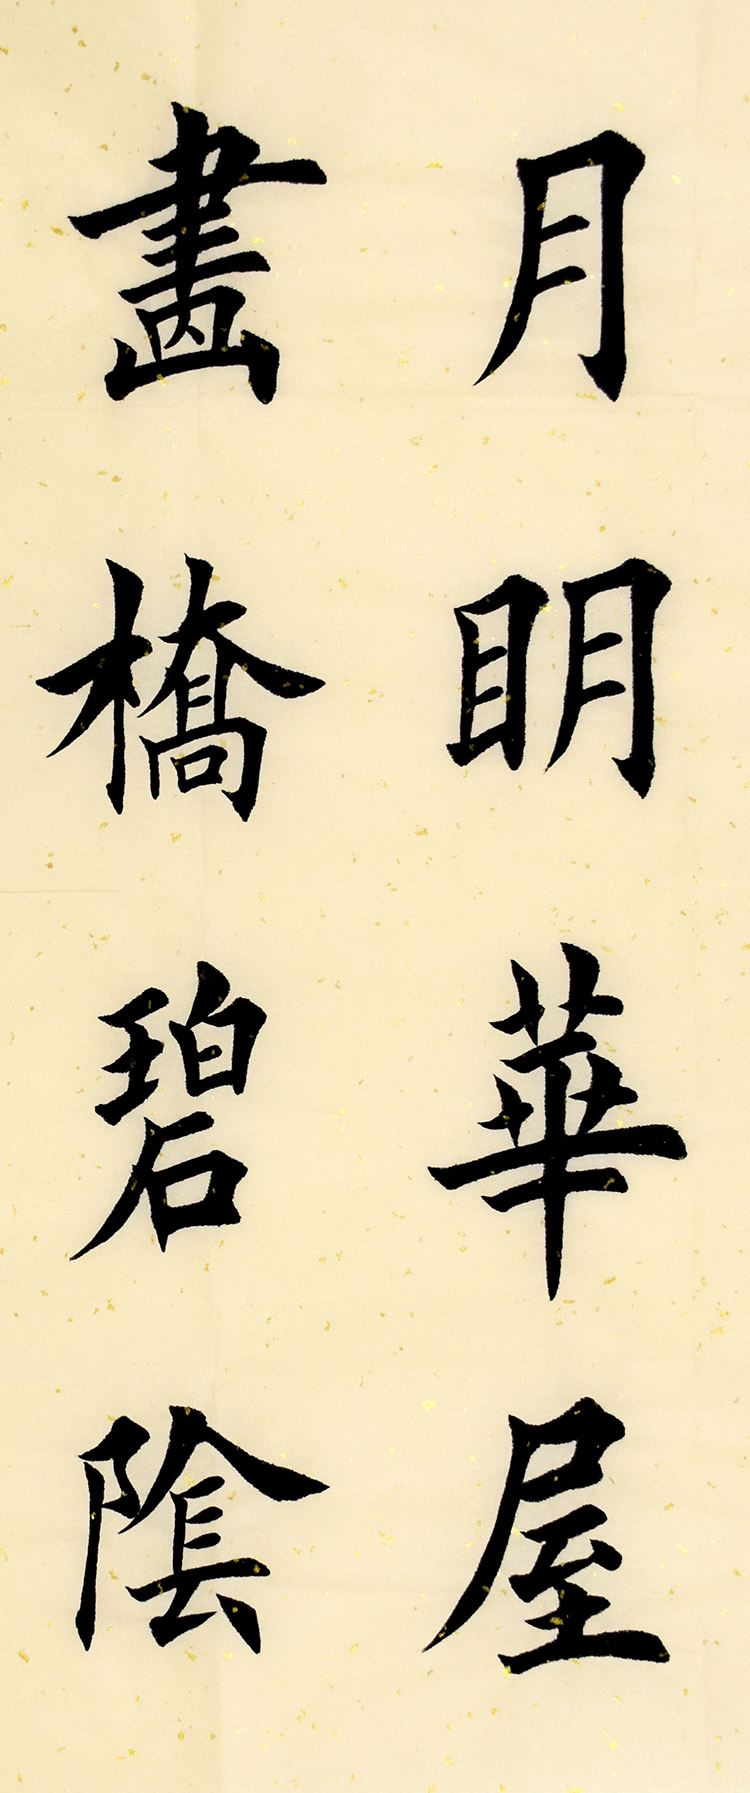 月明華屋
畫橋碧陰